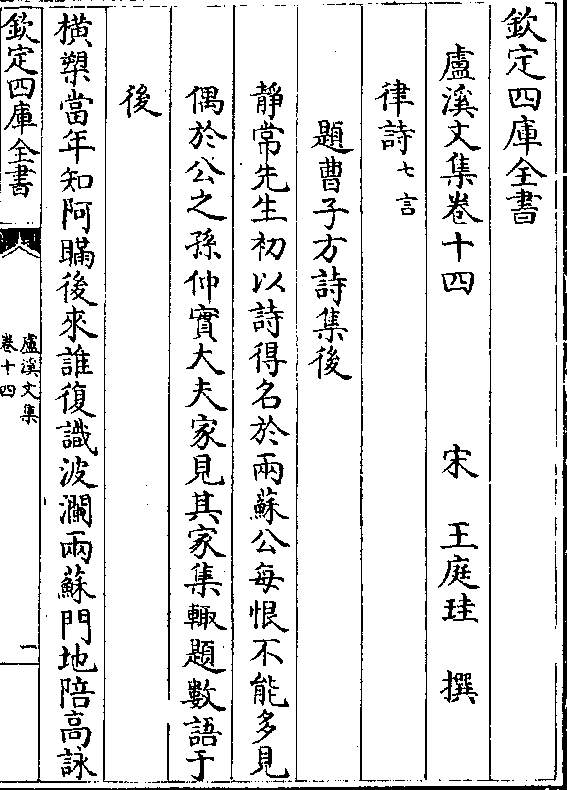 欽定四庫全書
盧溪文集卷十四　　宋　王庭珪　撰
律詩七言
題曹子方詩集後
靜常先生初以詩得名於兩蘇公每恨不能多見
偶於公之孫仲實大夫家見其家集輙題數語于
後
橫槊當年知阿瞞後來誰復識波瀾兩蘇門地陪高詠
欽定四庫全書
盧溪文集
卷十四
一